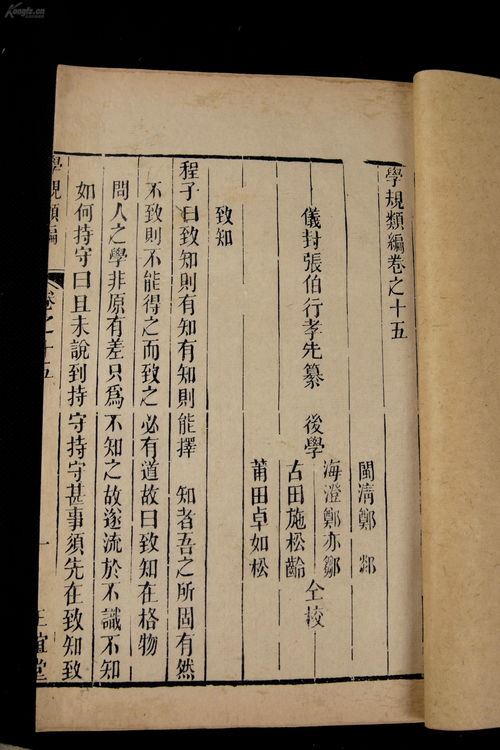 學規類編卷之十五
閩淸鄭
儀封張伯行孝先纂 後學
海澄鄭亦鄒
古田施松齡 仝校
莆田卓如松
致知
程子曰致知則有知有知則能擇 知者吾之所固有然
不致則不能得之而致之必有道故曰致知在格物
問人之學非原有差只爲不知之故遂流於不識不知
如何持守曰且未說到持守持守甚事須先在致知致
學規類編
卷之十五
一
正誼堂
Kongfz.cn